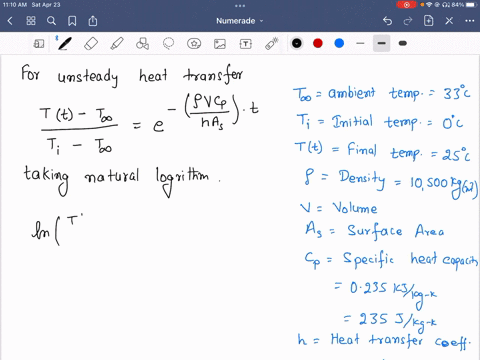 11:10 AM Sat Apr 23
84%
Numerade
For unsteady heat transfer
T(t) - T∞ / Ti - T∞ = e^-(ρVCp/hAs)·t
taking natural logrithm.
ln( T
T∞ = ambient temp. = 33°C
Ti = Initial temp. = 0°C
T(t) = Final temp. = 25°C
ρ = Density = 10,500 kg/m³
V = Volume
As = Surface Area
Cp = Specific heat capacity
= 0.235 KJ/kg-K
= 235 J/kg-K
h = Heat transfer coeff.